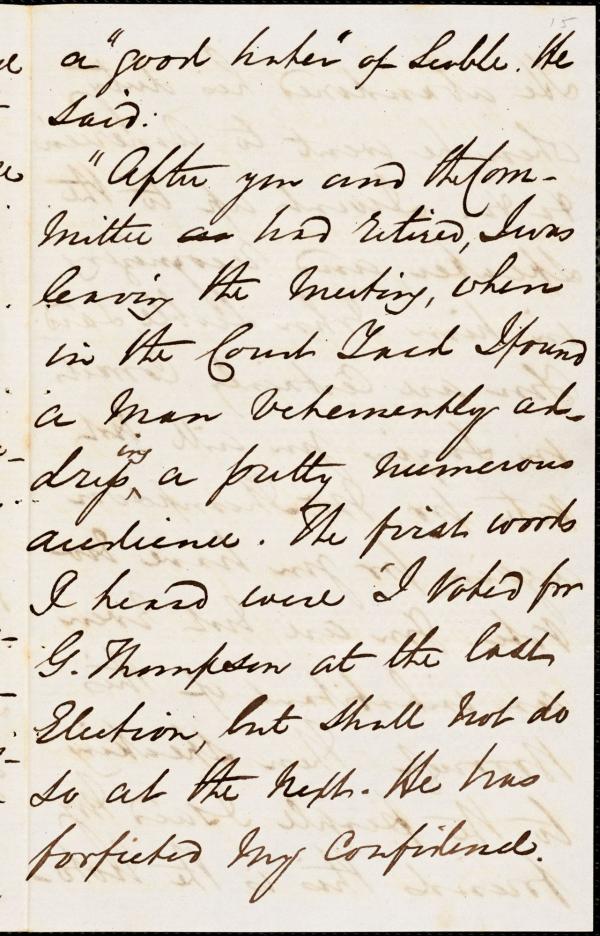 15
a "good hater" of Scoble. He
said:
"After you and the Com-
mittee as had retired, I was
leaving the Meeting, when
in the Court Yard I found
a Man vehemently ad-
dress^ing a pretty numerous
audience. The first words
I heard were 'I voted for
G. Thompson at the last
Election, but shall not do
so at the next. He has
forfieted my Confidence.